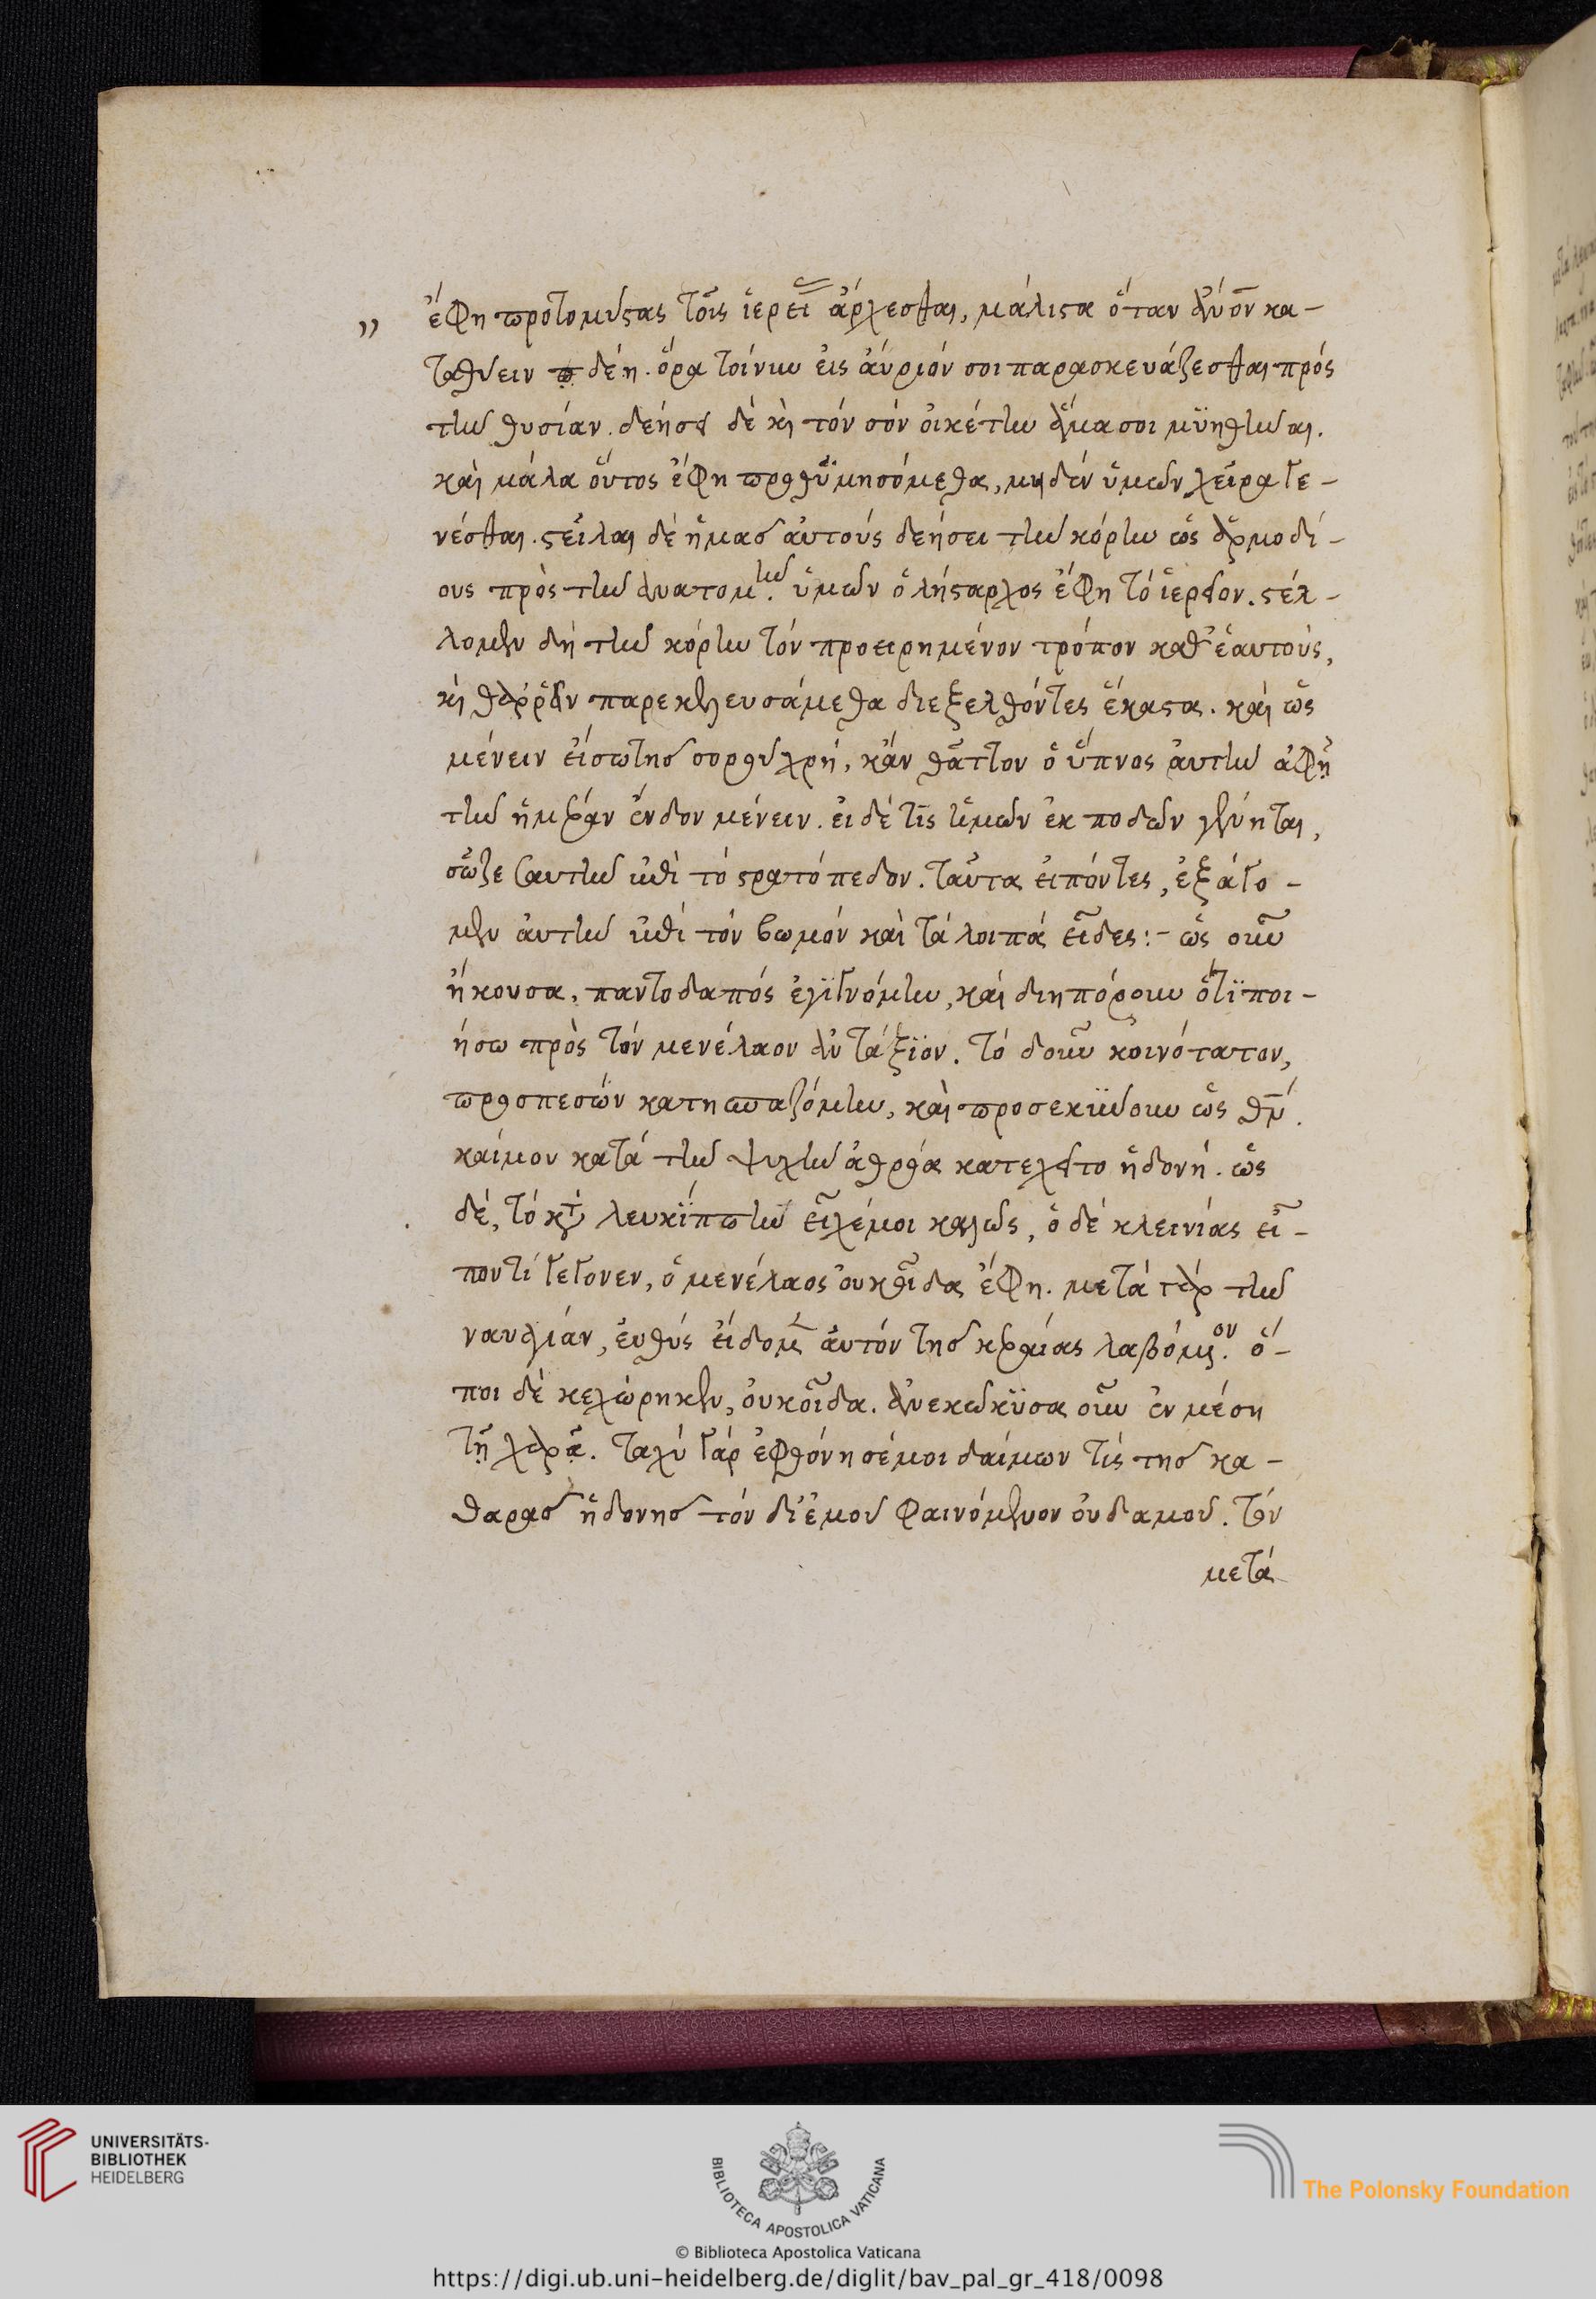 ,, ἔφη πρωτομύστας τοῖς ἱερεῖ ἄρχεσθαι, μάλιστα ὅταν ἄνον κα-
ταθύειν δέη. ὅρα τοίνυν εἰς αὔριόν σοι παρασκευάζεσθαι πρὸς
τὴν θυσίαν. δεήσει δὲ καὶ τὸν σὸν οἰκέτην ἅμα σοι μϋηθῆναι.
καὶ μάλα οὗτος ἔφη προθϋμησόμεθα, μηδὲν ὑμῶν χεῖρα γε-
νέσθαι. στεῖλαι δὲ ἡμᾶσ αὐτοὺς δεήσει τὴν κόρην ὡς ἁρμοδί-
ους πρὸς τὴν ἀνατομήν. ὑμῶν ὁ λήσταρχος ἔφη τὸ ἱερεῖον. στέλ-
λομεν δὴ τὴν κόρην τὸν προειρημένον τρόπον καθ' ἑαυτούς,
καὶ θαρρεῖν παρεκελευσάμεθα διεξελθόντες ἕκαστα. καὶ ὡς
μένειν εἴσω τῆσ σοροῦ χρή, κἂν θᾶττον ὁ ὕπνος αὐτὴν ἀφῇ
τὴν ἡμέραν ἔνδον μένειν. εἰ δέ τις ἡμῶν ἐκποδὼν γένηται,
σῶζε σαυτὴν ἐπὶ τὸ στρατόπεδον. ταῦτα εἰπόντες, ἐξάγο-
μεν αὐτὴν ἐπὶ τὸν βωμὸν καὶ τὰ λοιπὰ εἶδες:- ὡς οὖν
ἤκουσα, παντοδαπὸς ἐγϊγνόμην, καὶ διηπόρουν ὅτϊ ποι-
ήσω πρὸς τὸν μενέλαον ἀντάξϊον. τὸ δοῦν κοινότατον,
προσπεσὼν κατησπαζόμην, καὶ προσεκϋνουν ὡς θν.
καίμου κατὰ τὴν ψυχὴν ἀθρόα κατεχεῖτο ἡδονή. ὡς
δὲ, τὸ κατὰ λευκίππην εἶχέ μοι καλῶς, ὁ δὲ κλεινίας εἶ-
πον τί γέγονεν, ὁ μενέλαος οὐκ οἶδα ἔφη. μετὰ γὰρ τὴν
ναυαγίαν, εὐθὺς εἴδομεν αὐτὸν τῆσ κεραίας λαβόμενον. ὅ-
ποι δὲ κεχώρηκεν, οὐκ οἶδα. ἀνεκώκϋσα οὖν ἐν μέση
τῇ χαρᾷ. ταχὺ γὰρ ἐφθόνησέ μοι δαίμων τὶς τῆσ κα-
θαρᾶσ ἡδονῆσ τὸν δι' ἐμοῦ φαινόμενον οὐδαμοῦ. τὸν
μετά
UNIVERSITÄTS-
BIBLIOTHEK
HEIDELBERG
BIBLIOTECA APOSTOLICA VATICANA
© Biblioteca Apostolica Vaticana
The Polonsky Foundation
https://digi.ub.uni-heidelberg.de/diglit/bav_pal_gr_418/0098